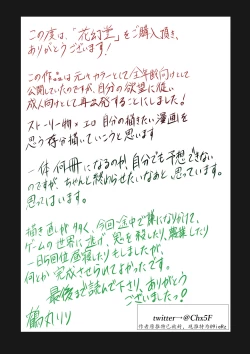 この度は、「花幻塗」をご購入頂き、
ありがとうございます！
この作品は元々カラーとして全年齢向けとして
公開していたのですが、自分の欲望に従い
成人向けとして再出発することにしました！
ストーリー物×エロ 自分の描きたい漫画を
思う存分描いていこうと思います
一体何冊になるのか自分でも予想できない
のですが、ちゃんと終わらせたいなあと、思っています。
思ってはいます。
描き直しが多く、今回途中で嫌になりかけて、
ゲームの世界に逃げ、鬼を殺したり、募集したり
一日5回位昼寝したりもしましたが、
何とか完成させられてよかったです。
最後まで読んで下さり、ありがとう
ございましたっ！
鶴丸リリ
twitter→@Chx5F